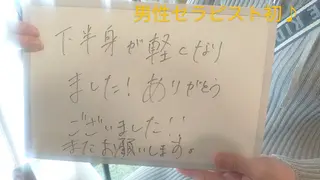 男性セラピスト初♪
下半身が軽くなり
ました！ありがとう
ございました!!
またお願いします。